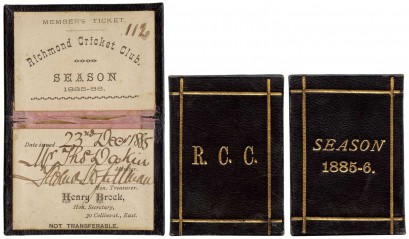 MEMBER'S TICKET.
112
Richmond Cricket Club.
SEASON
1885-86.
Date issued 23rd Dec 1885
Mr Thos Deakin
Hon. Treasurer.
Henry Brock,
Hon. Secretary,
30 Collins-st., East.
NOT TRANSFERABLE.
R. C. C.
SEASON
1885-6.